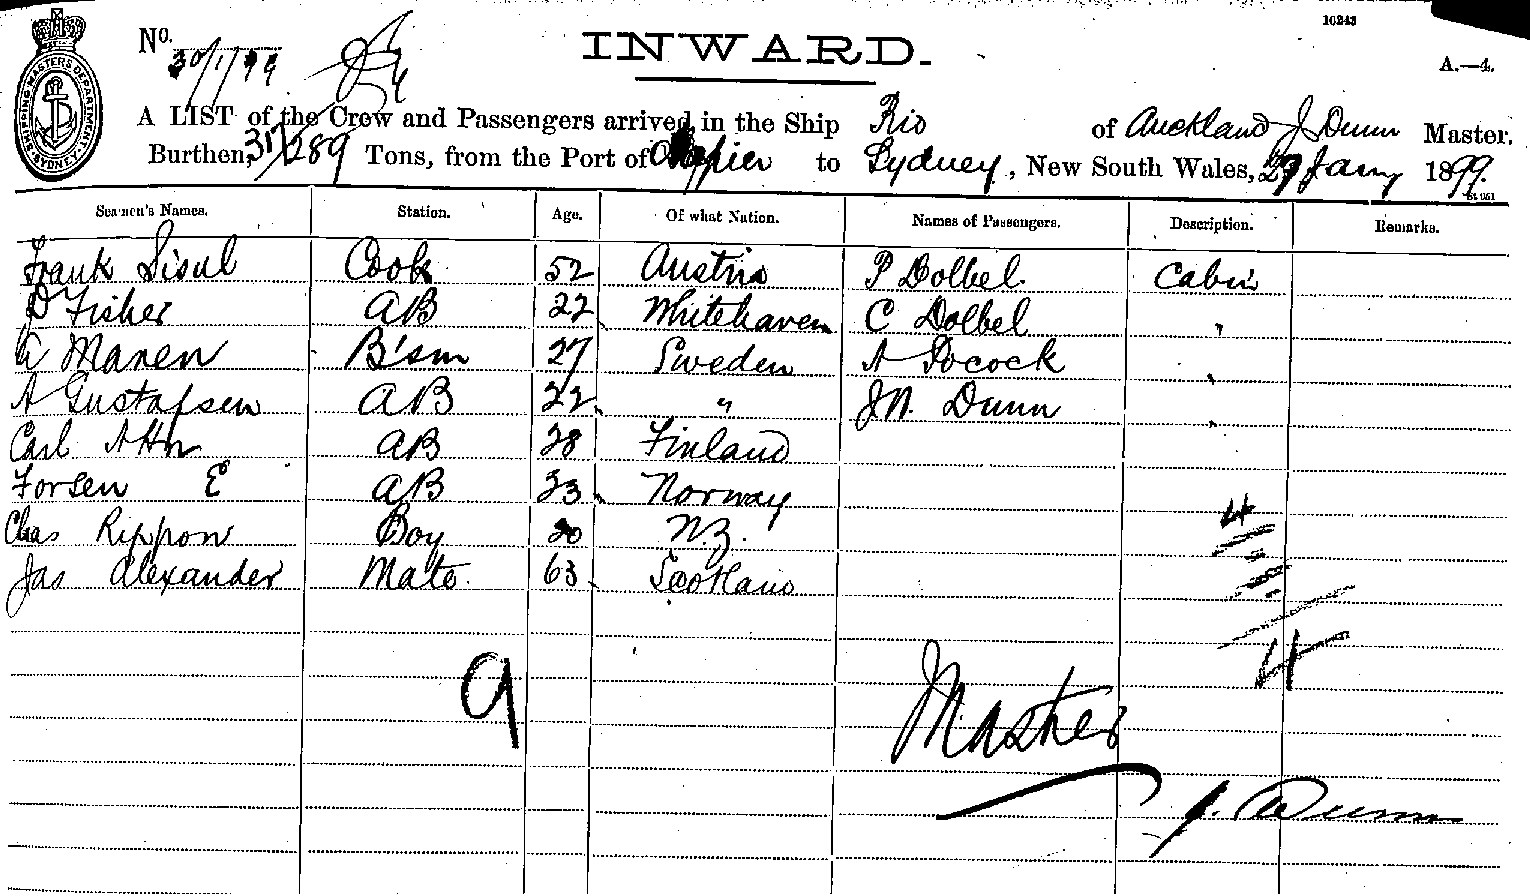 10243
No. 30/1/99
INWARD.
A.—4.
SHIPPING MASTERS DEPARTMENT. SYDNEY.
A LIST of the Crew and Passengers arrived in the Ship Rio of Auckland J Dunn Master.
Burthen, 289 Tons, from the Port of Napier to Sydney, New South Wales, 29 Jany 1899.
Seamen's Names. Station. Age. Of what Nation. Names of Passengers. Description. Remarks.
Frank Sisul Cook 52 Austria P Dolbel Cabin
D Fisher AB 22 Whitehaven C Dolbel "
Maren B'sm 27 Sweden A Pocock "
A Gustafsen AB 22 " J.N. Dunn "
Carl AB 28 Finland
Forsen E AB 33 Norway 4
Chas Rippon Boy 20 N.Z.
Jas Alexander Mate. 63 Scotland
4
9
Master
J. Dunn